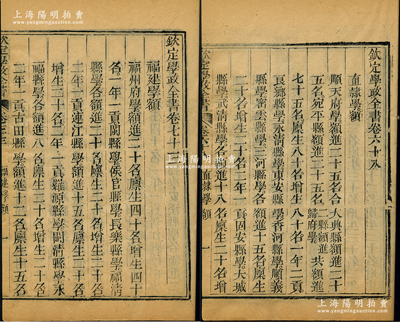 上海陽明拍賣
欽定學政全書卷六十八
直隸學額
順天府學額進二十五名大興縣額進二十
五名宛平縣額進二十五名合二縣額進共額進
歸府學
七十五名廩生八十名增生八十名一年二貢
良鄉縣學永清縣學東安縣學香河縣學順義
縣學密雲縣學三河縣學各額進十五名廩生
二十名增生二十名二年一貢固安縣學大城
縣學武清縣學各額進十八名廩生二十名增
欽定學政全書 卷六十八 直隸學額 一
欽定學政全書卷七十一
福建學額
福州府學額進二十名廩生四十名增生四十
名一年一貢閩縣學侯官縣學長樂縣學福清
縣學各額進二十名廩生二十名增生二十名
二年一貢連江縣學額進十五名廩生二十名
增生二十名二年一貢羅源縣學閩清縣學永
福縣學各額進八名廩生二十名增生二十名
二年一貢古田縣學額進十二名廩生二十五名
欽定學政全書 卷七十一 福建學額 一
上海陽明拍賣
www.yangmingauction.com